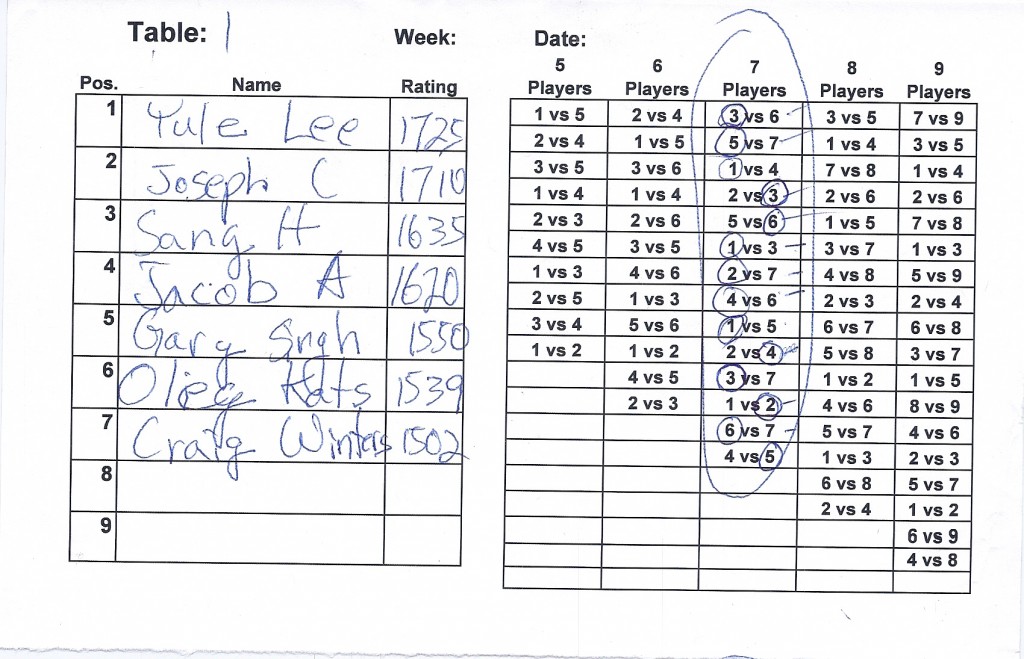 Table: 1 Week: Date:
5 6 7 8 9
Pos. Name Rating Players Players Players Players Players
1 Yule Lee 1725 1 vs 5 2 vs 4 3 vs 6 3 vs 5 7 vs 9
2 vs 4 1 vs 5 5 vs 7 1 vs 4 3 vs 5
2 Joseph C 1710 3 vs 5 3 vs 6 1 vs 4 7 vs 8 1 vs 4
1 vs 4 1 vs 4 2 vs 3 2 vs 6 2 vs 6
3 Sang H 1635 2 vs 3 2 vs 6 5 vs 6 1 vs 5 7 vs 8
4 vs 5 3 vs 5 1 vs 3 3 vs 7 1 vs 3
4 Jacob A 1620 1 vs 3 4 vs 6 2 vs 7 4 vs 8 5 vs 9
2 vs 5 1 vs 3 4 vs 6 2 vs 3 2 vs 4
5 Gary Singh 1550 3 vs 4 5 vs 6 1 vs 5 6 vs 7 6 vs 8
1 vs 2 1 vs 2 2 vs 4 5 vs 8 3 vs 7
6 Oleg Kats 1539 4 vs 5 3 vs 7 1 vs 2 1 vs 5
2 vs 3 1 vs 2 4 vs 6 8 vs 9
7 Craig Winters 1502 6 vs 7 5 vs 7 4 vs 6
4 vs 5 1 vs 3 2 vs 3
8 6 vs 8 5 vs 7
2 vs 4 1 vs 2
9 6 vs 9
4 vs 8